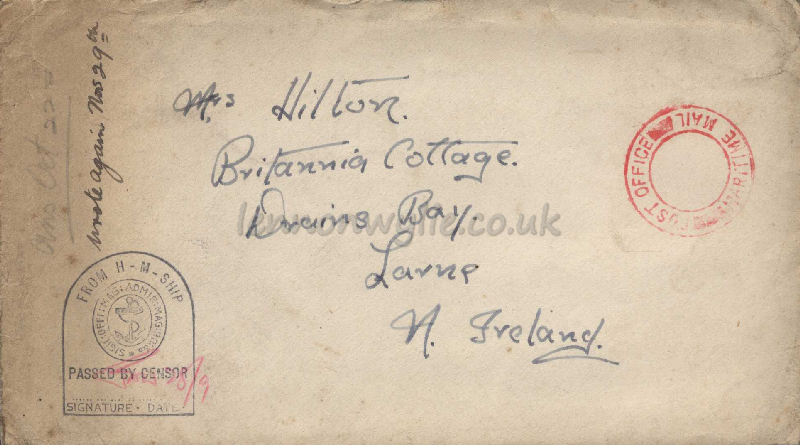 wrote again Nov 29th
Mrs Hilton.
Britannia Cottage.
Drains Bay.
Larne
N. Ireland.
POST OFFICE MARITIME MAIL
lennonwylie.co.uk
FROM H-M-SHIP
PASSED BY CENSOR
SIGNATURE · DATE